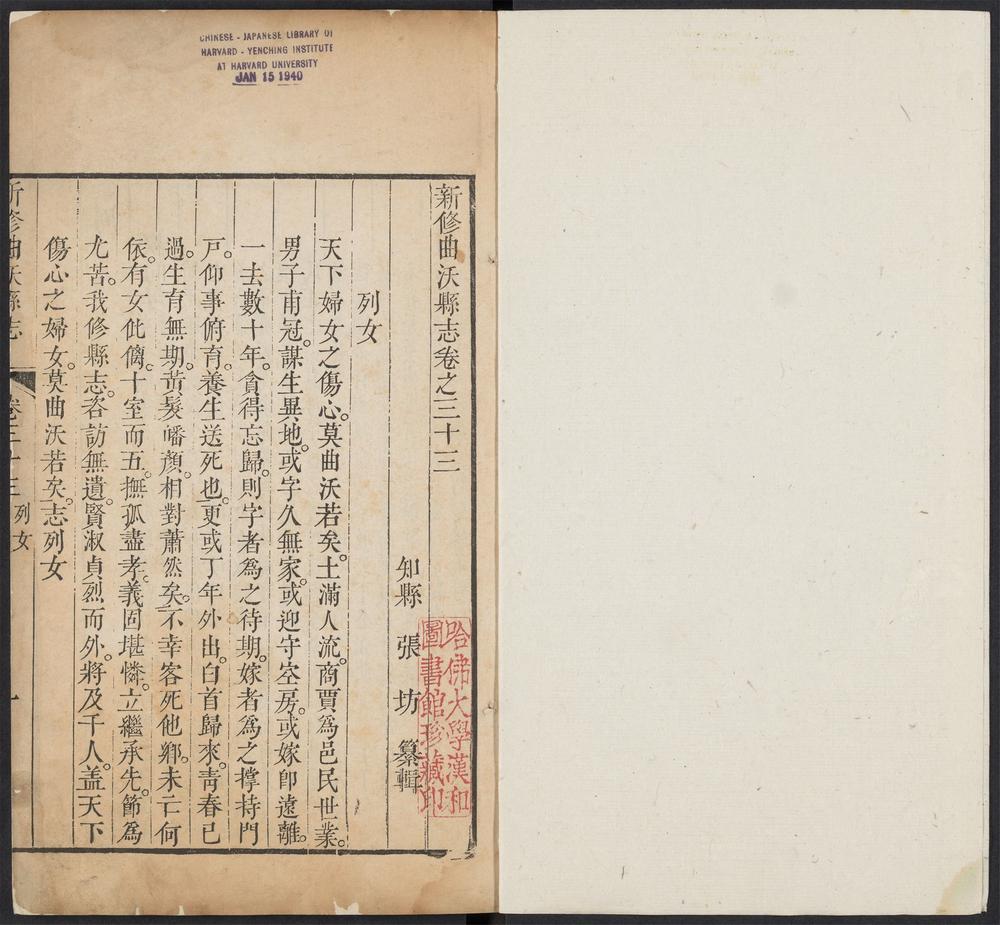 CHINESE - JAPANESE LIBRARY OF
HARVARD - YENCHING INSTITUTE
AT HARVARD UNIVERSITY
JAN 15 1940
新修曲沃縣志卷之三十三
知縣 張 坊 纂輯
哈佛大學漢和
圖書館珍藏印
列女
天下婦女之傷心。莫曲沃若矣。土滿人流。商賈爲邑民世業。
男子甫冠。謀生異地。或字久無家。或迎守空房。或嫁卽遠離。
一去數十年。貪得忘歸。則字者爲之待期。嫁者爲之撑持門
戸。仰事俯育。養生送死也。更或丁年外出。白首歸來。靑春已
過。生育無期。黃髮皤顏。相對蕭然矣。不幸客死他鄉。未亡何
依。有女仳㒧。十室而五。撫孤盡孝。義固堪憐。立繼承先。節爲
尤苦。我修縣志。咨訪無遺。賢淑貞烈而外。將及千人。盖天下
傷心之婦女。莫曲沃若矣。志列女
新修曲沃縣志 卷三十三 列女 一